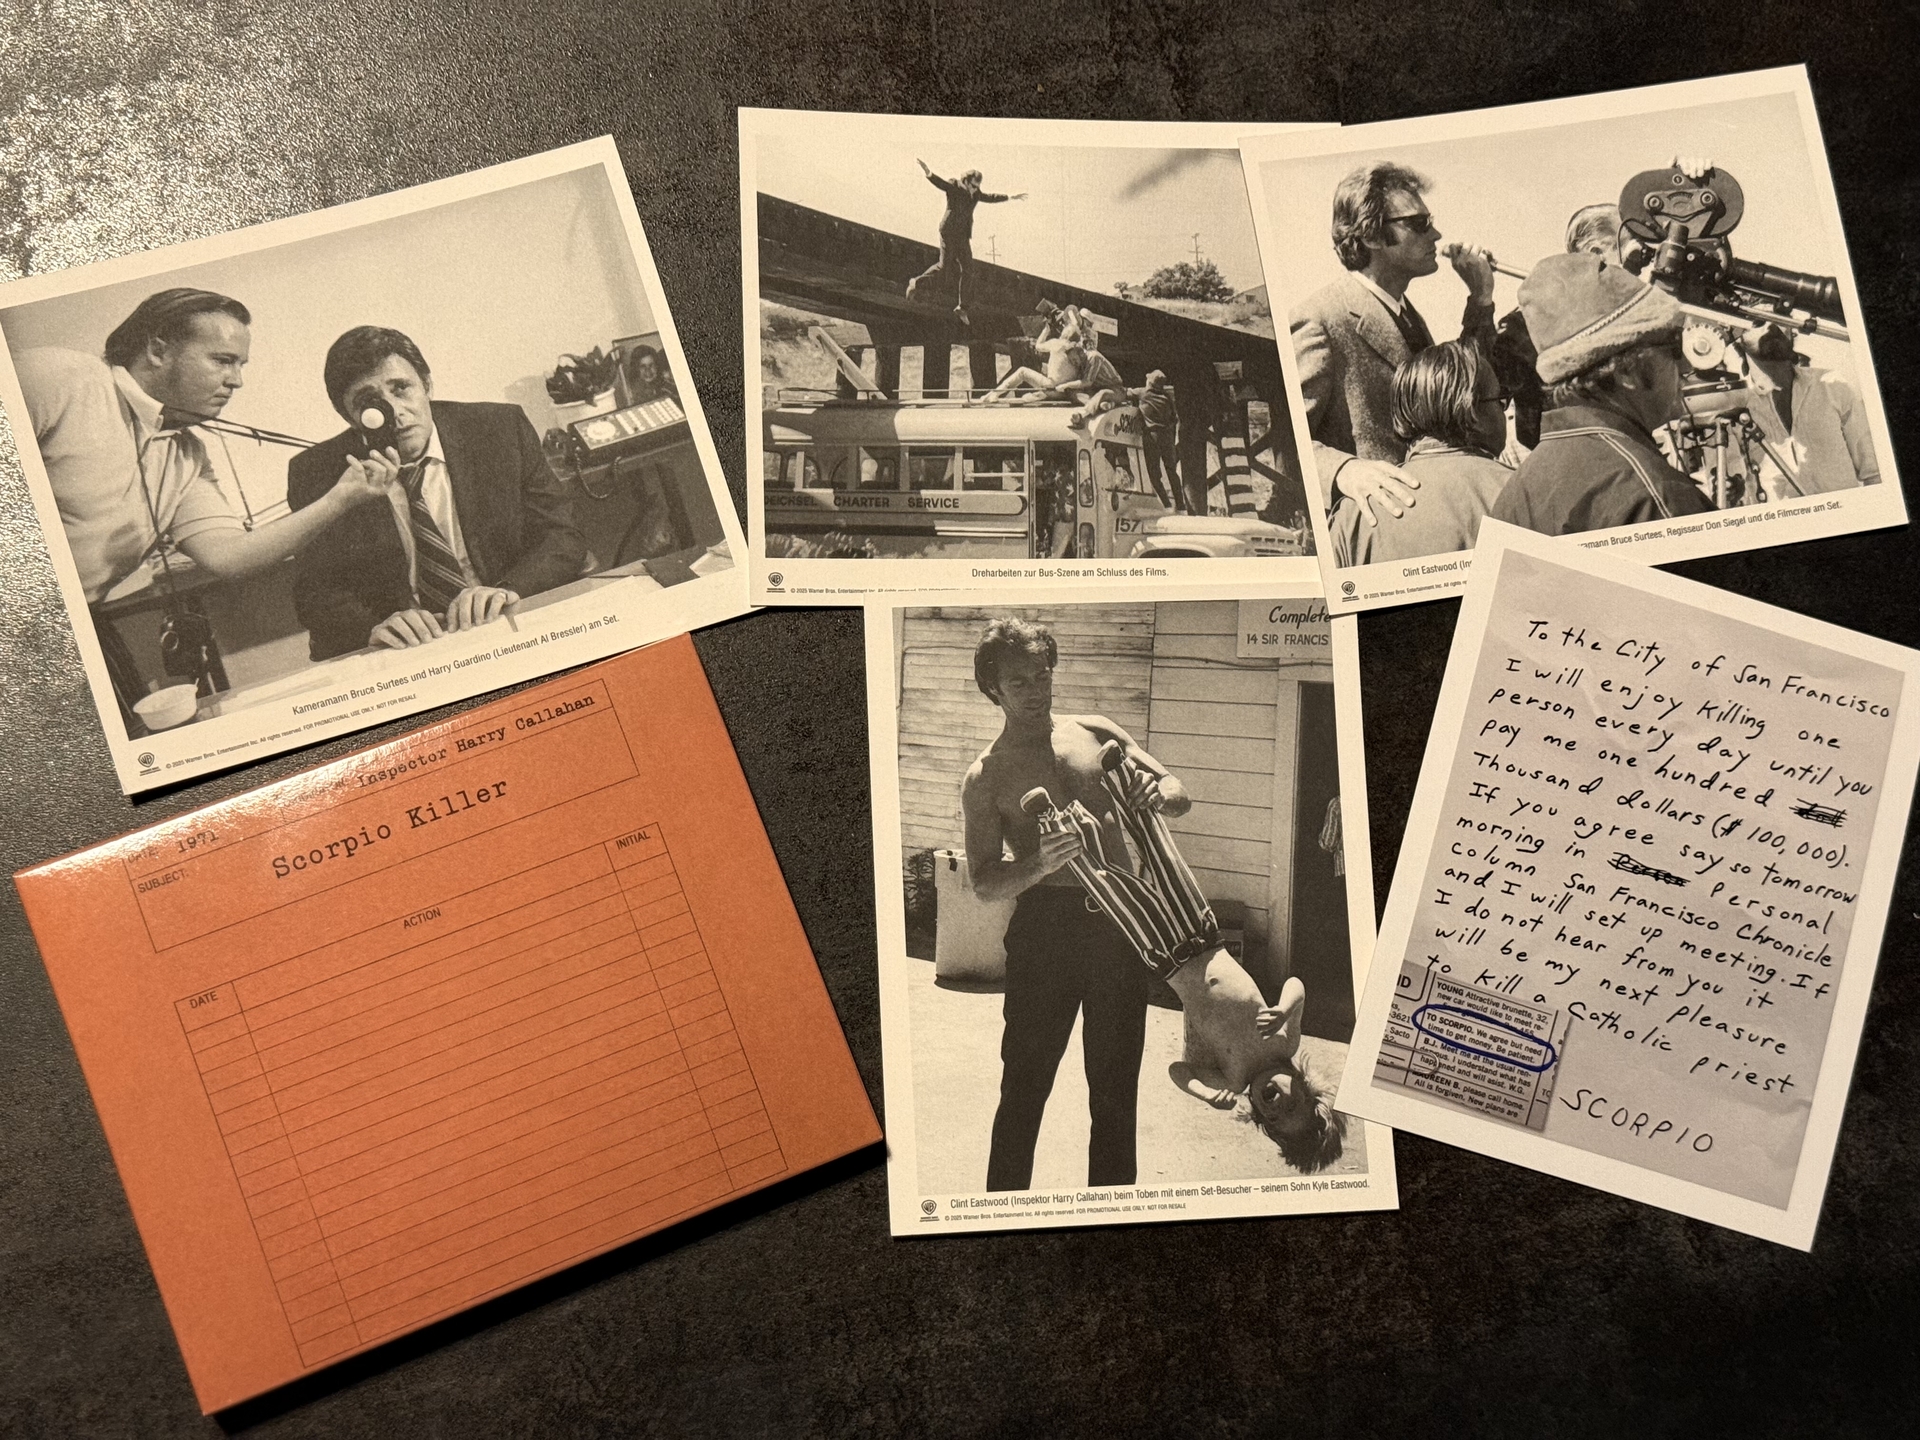 Kameramann Bruce Surtees und Harry Guardino (Lieutenant Al Bressler) am Set.
© 2025 Warner Bros. Entertainment Inc. All rights reserved. FOR PROMOTIONAL USE ONLY. NOT FOR RESALE
CHARTER SERVICE
157
Dreharbeiten zur Bus-Szene am Schluss des Films.
© 2025 Warner Bros. Entertainment Inc. All rights reserved.
Clint Eastwood (In
mann Bruce Surtees, Regisseur Don Siegel und die Filmcrew am Set.
© 2025 Warner Bros. Entertainment Inc. All rights
Inspector Harry Callahan
DATE: 1971
SUBJECT:
Scorpio Killer
ACTION
INITIAL
DATE
Complete
14 SIR FRANCIS
Clint Eastwood (Inspektor Harry Callahan) beim Toben mit einem Set-Besucher – seinem Sohn Kyle Eastwood.
© 2025 Warner Bros. Entertainment Inc. All rights reserved. FOR PROMOTIONAL USE ONLY. NOT FOR RESALE
To the City of San Francisco
I will enjoy Killing one
person every day until you
pay me one hundred
Thousand dollars ($ 100,000).
If you agree say so tomorrow
morning in personal
column San Francisco Chronicle
and I will set up meeting. If
I do not hear from you it
will be my next pleasure
to Kill a Catholic priest
SCORPIO
YOUNG Attractive brunette, 32,
new car would like to meet re-
TO SCORPIO. We agree but need
time to get money. Be patient.
B.J. Meet me at the usual ren-
dezvous. I understand what has
happened and will assist. W.G.
UREEN B. please call home.
All is forgiven. New plans are
3621
Sacto